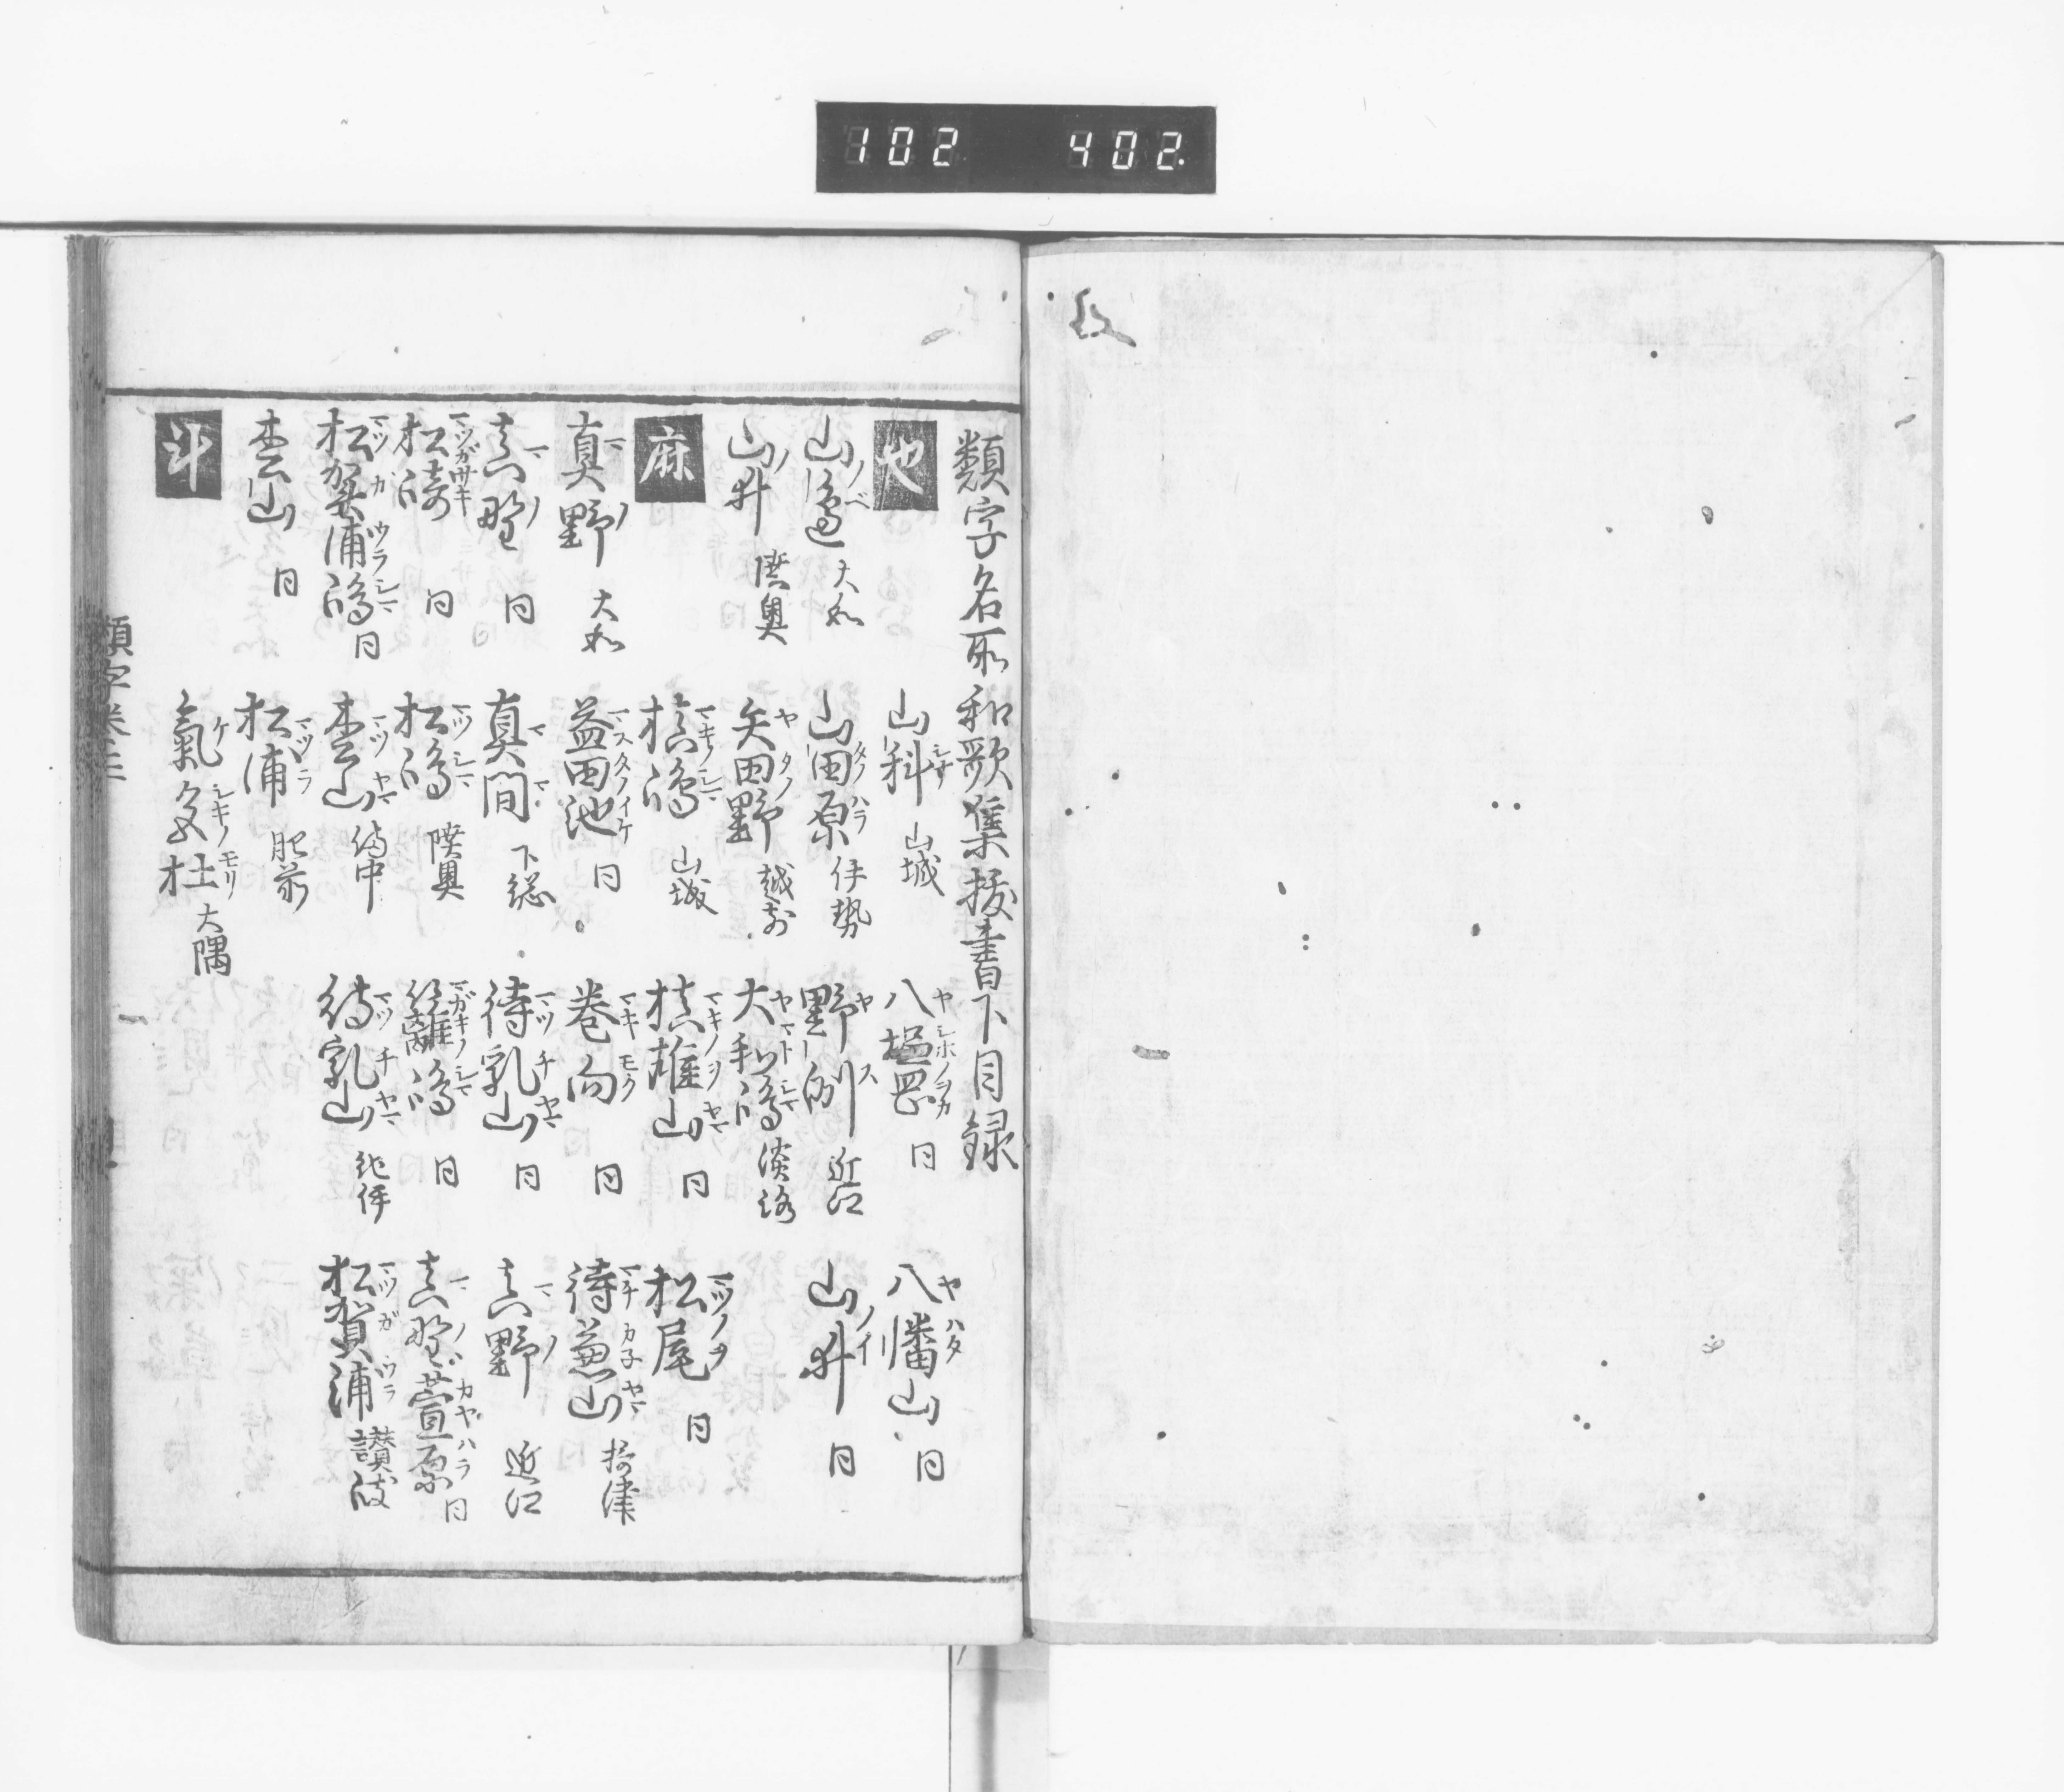 102 402
類字名所和歌集抜書下目録
也 山科 山城 八塩岡 同 八幡山 同
山邊 大和 山田原 伊勢 野洲 近江 山井 同
山井 陸奥 矢田野 越前 大和嶋 淡路
麻 槙嶋 山城 槙雄山 同 松尾 同
真野 大和 益田池 同 巻向 同 待兼山 摂津
真野 同 真間 下総 待乳山 同 真野 近江
松崎 同 松嶋 陸奥 籬嶋 同 真野萱原 同
松賀浦嶋 同 松山 備中 待乳山 紀伊 松賀浦 讃岐
松山 同 松浦 肥前
斗 氣色杜 大隅
類字巻三